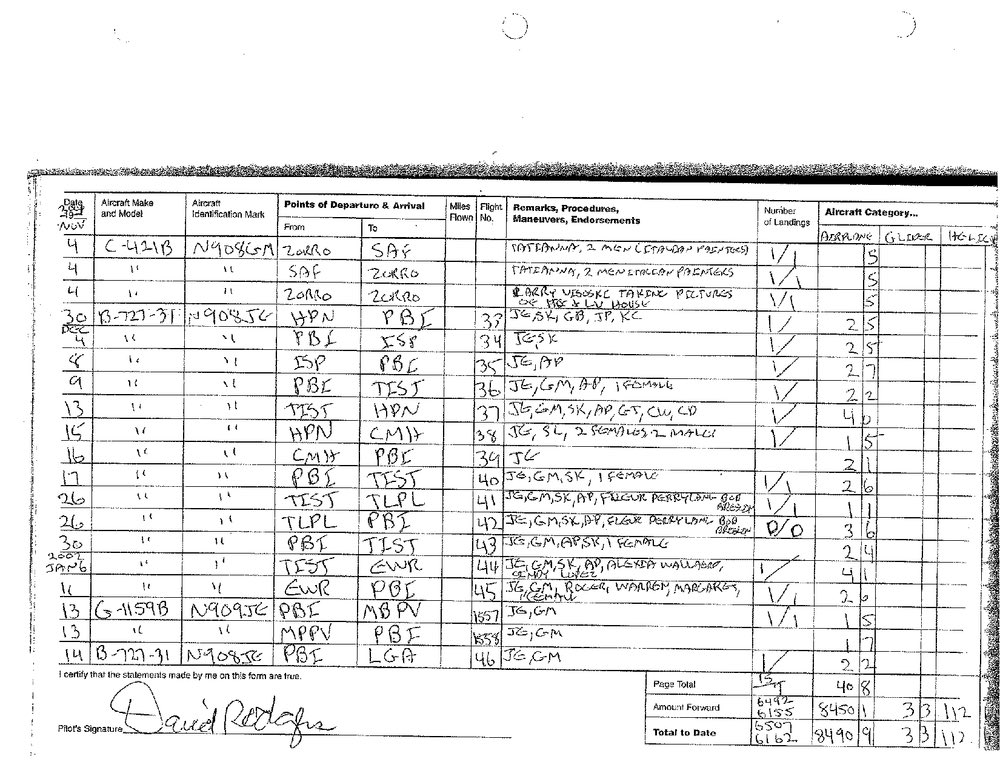 Date Aircraft Make and Model Aircraft Identification Mark Points of Departure & Arrival Miles Flown Flight No. Remarks, Procedures, Maneuvers, Endorsements Number of Landings Aircraft Category...
NOV From To AIRPLANE GLIDER HELIC
4 C-421B N908GM ZORRO SAF TATIANNA, 2 MEN (ITALIAN PAINTERS) 1/1 5
4 " " SAF ZORRO TATIANNA, 2 MEN ITALIAN PAINTERS 1/1 5
4 " " ZORRO ZORRO LARRY VISOSKI TAKING PICTURES OF & LV HOUSE 1/1 5
30 B-727-31 N908JE HPN PBI 33 JE, SK, GB, JP, KC 1/ 2 5
DEC 4 " " PBI ISP 34 JE, SK 1/ 2 5
8 " " ISP PBI 35 JE, AP 1/ 2 7
9 " " PBI TIST 36 JE, GM, AP, 1 FEMALE 2 2
13 " " TIST HPN 37 JE, GM, SK, AP, GT, CW, CD 1/ 4 0
15 " " HPN CMH 38 JE, SL, 2 FEMALES 2 MALES 1/ 1 5
16 " " CMH PBI 39 JE 2 1
17 " " PBI TIST 40 JE, GM, SK, 1 FEMALE 1/1 2 6
26 " " TIST TLPL 41 JE, GM, SK, AP, FLEUR PERRYLANG BOB 1/1 1 1
26 " " TLPL PBI 42 JE, GM, SK, AP, FLEUR PERRYLANG BOB D/0 3 6
30 " " PBI TIST 43 JE, GM, AP, SK, 1 FEMALE 2 4
2002 JAN 6 " " TIST EWR 44 JE, GM, SK, AP, ALEXIA WALLAERT, CINDY LOPEZ 1/ 4 1
11 " " EWR PBI 45 JE, GM, ROGER, WARREN, MARGARET, 1 FEMALE 1/1 2 6
13 G-1159B N909JE PBI MBPV 1557 JE, GM 1/1 1 5
13 " " MPPV PBI 1558 JE, GM 1 7
14 B-727-31 N908JE PBI LGA 46 JE, GM 1/ 2 2
I certify that the statements made by me on this form are true.
Page Total 15 40 8
Amount Forward 6492 6155 8450 1 3 3 112
Pilot's Signature David Rodgers
Total to Date 6507 6162 8490 9 3 3 112